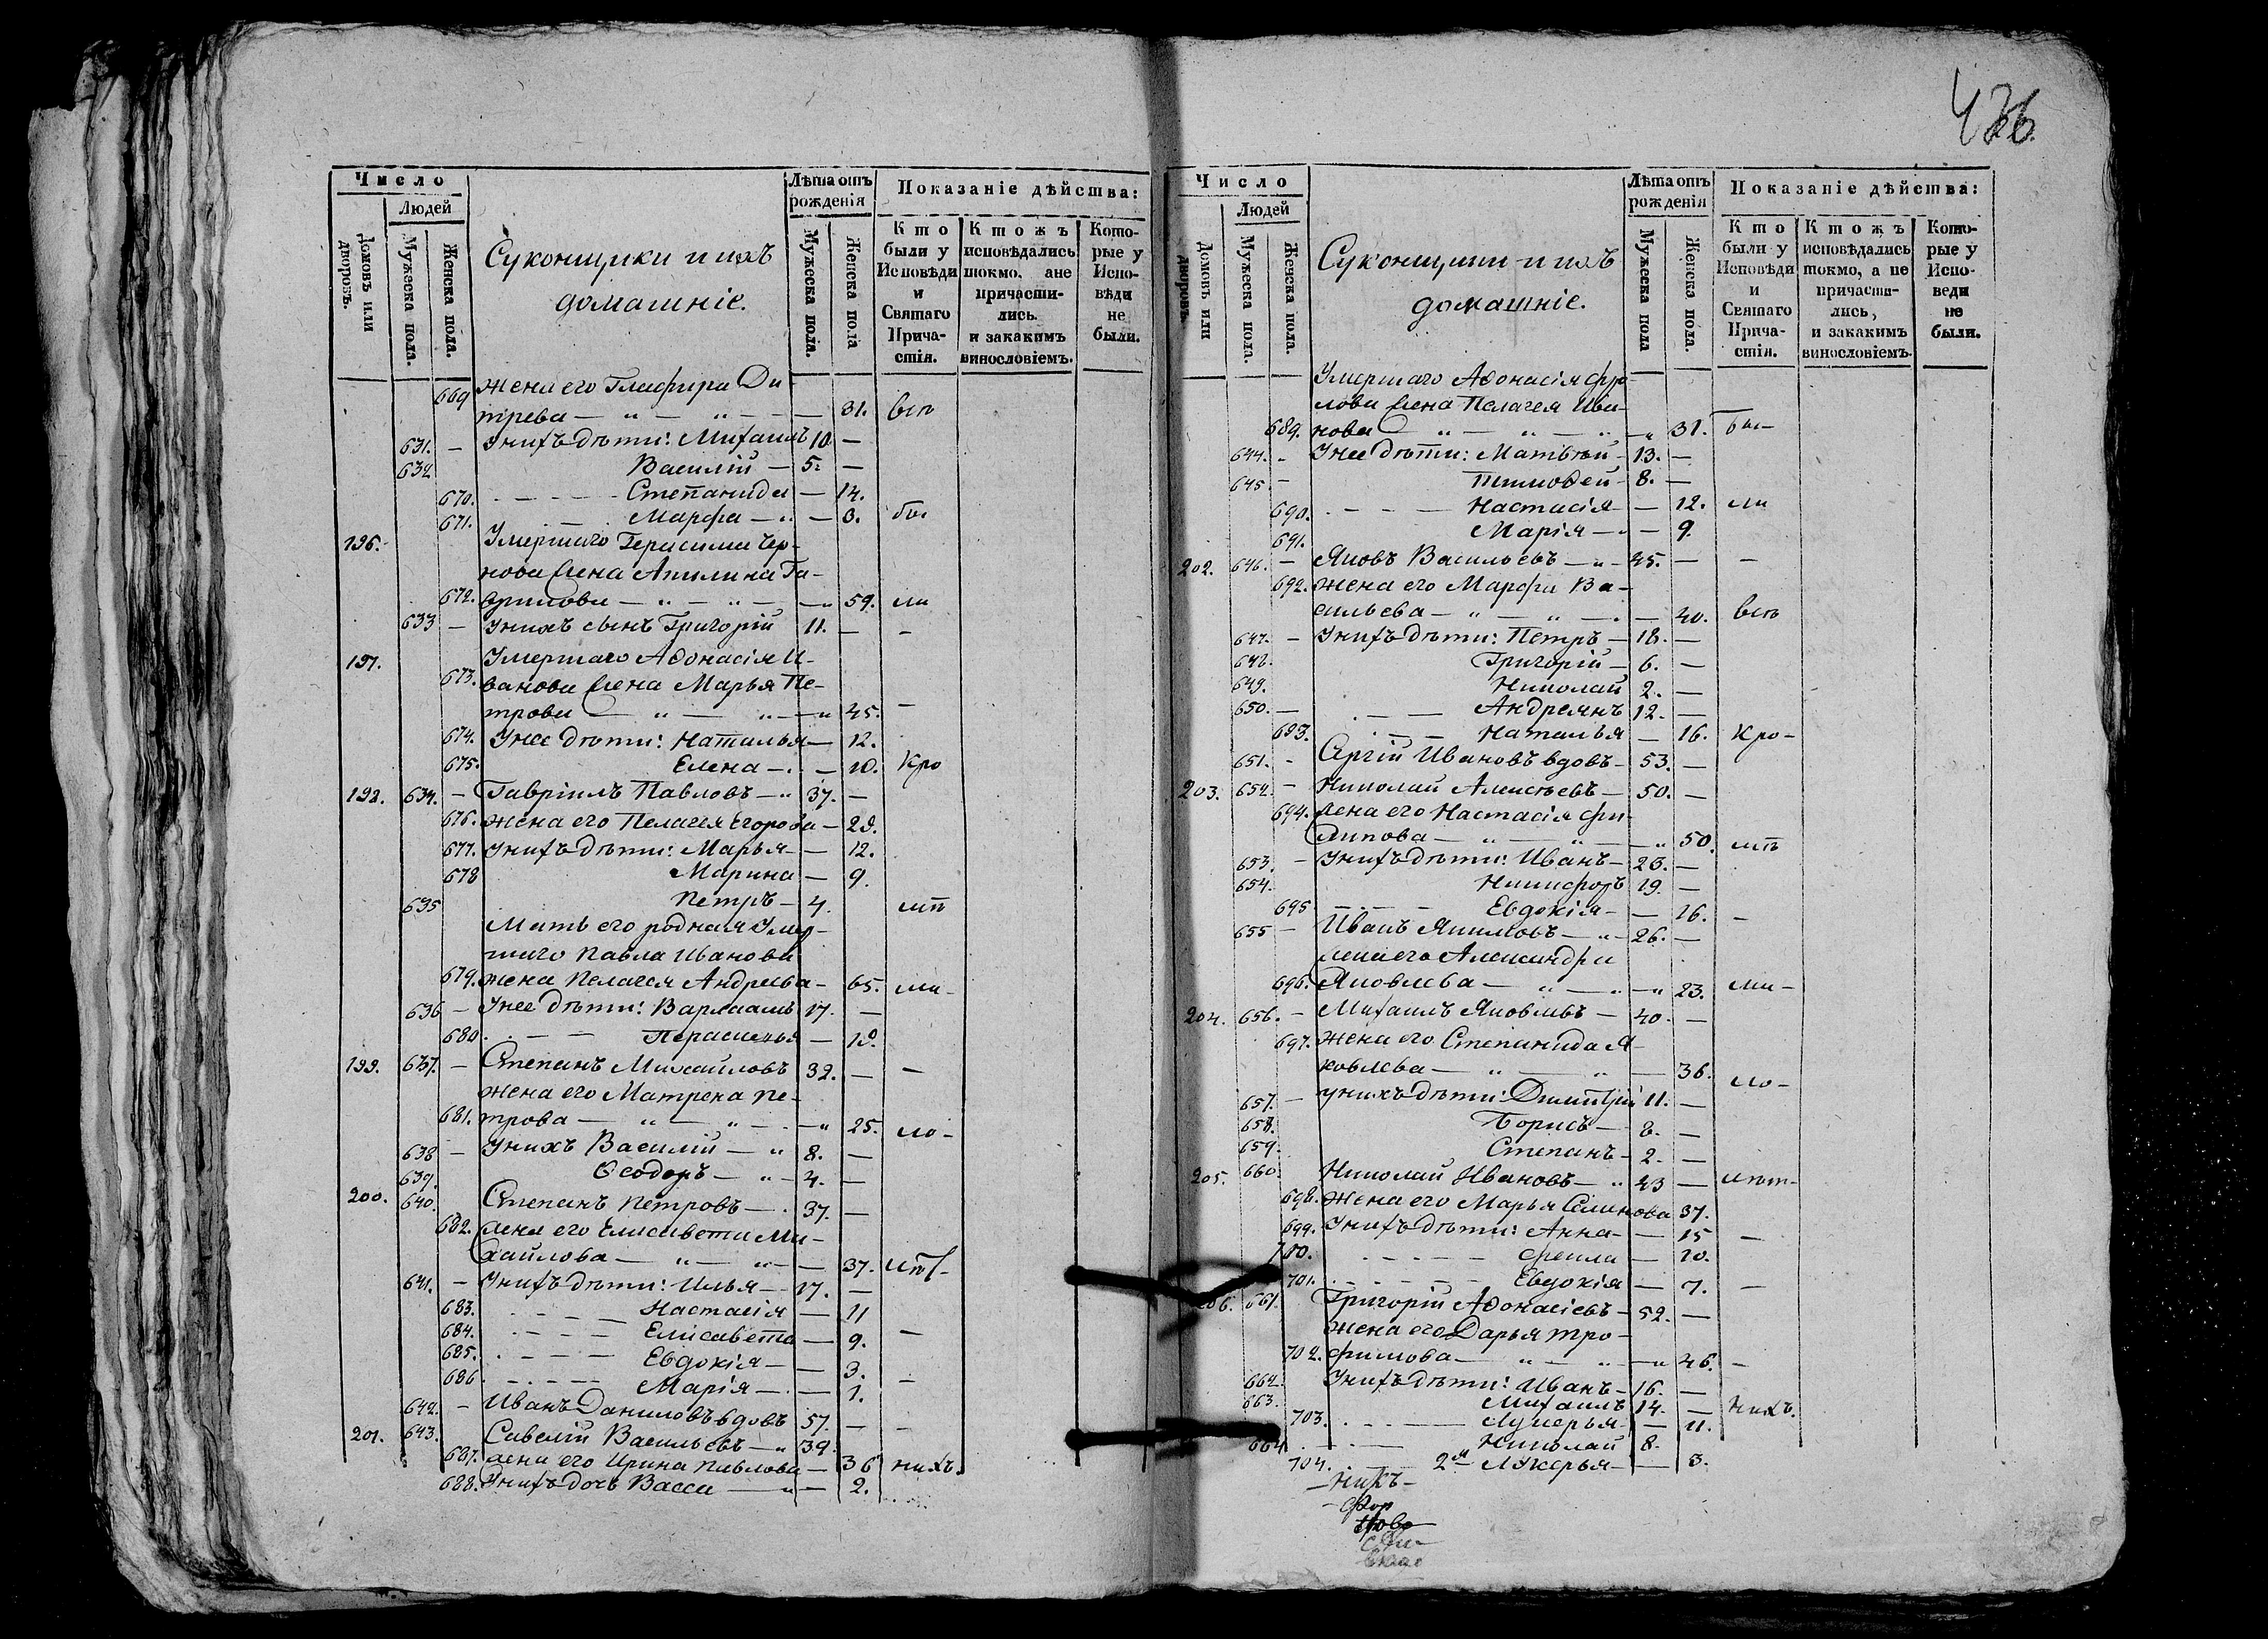 436.
Число
Людей
Домовъ или дворовъ.
Мужеска пола.
Женска пола.
Суконщики и ихъ
домашніе.
Лѣта отъ
рожденія
Мужеска пола.
Женска пола
Показаніе дѣйства:
Кто
были у
Исповѣди
и
Святаго
Прича-
стія.
Ктожъ
исповѣдались
токмо, ане
причасти-
лись
и закакимъ
винословіемъ.
Кото-
рые у
Испо-
вѣди
не
были.
669 жена его Глафира Ди-
трева — „ — „ — — 31. всѣ
631. — У нихъ дѣти: Михаилъ 10 —
632 Василій — 5. —
670. Степанида — 14.
671. Марфа — „ — 3. бы
196. Умершаго Герасима Чер-
нова жена Акилина Га-
672. врилова — „ — „ — 59. ли
633 — У нихъ сынъ Григорій 11. — -
197. Умершаго Аѳонасія И-
673. ванова жена Марья Пе-
трова — „ — „ — „ 45. -
674. У нее дѣти: Наталья — 12.
675. Елена — . — 10. кро
198. 634. — Гавріилъ Павловъ — „ 37. —
676. жена его Пелагея Егорова — 28.
677. У нихъ дѣти: Марья — — 12.
678 Марина — 9.
635 Петръ — 4. мѣ
Мать его родная Умер-
шаго Павла Иванова
679. жена Пелагея Андреева — 65. ли-
636 — У нее дѣти: Варлаамъ 17. —
680 — — 18.
199. 637. — Степанъ Михайловъ 32. — —
жена его Матрена Пе-
681. трова — „ — „ — . — „ 25. ло-
638 — У нихъ Василій — „ 8. —
639. Ѳеодоръ — „ — 4. —
200. 640. Степанъ Петровъ — . 37. —
682. жена его Елисавета Ми-
хайлова — „ — „ — — 37.
641. — У нихъ дѣти: Илья — 17. —
683. Настасія — 11
684. Елисавета — 9. —
685. Евдокія — — 3.
686 Марія — . — 1. —
642. — Иванъ Даниловъ вдовъ 57. — -
201. 643. Савелій Васильевъ — „ 39.
687. жена его Ирина Павлова — 36 нихъ.
688. У нихъ дочь Васса — „ — 2.
Число
Людей
Домовъ или дворовъ.
Мужеска пола.
Женска пола.
Суконщики и ихъ
домашніе.
Лѣта отъ
рожденія
Мужеска пола
Женска пола.
Показаніе дѣйства:
Кто
были у
Исповѣди
и
Святаго
Прича-
стія.
Ктожъ
исповѣдались
токмо, а не
причасти-
лись,
и закакимъ
винословіемъ.
Кото-
рые у
Испо-
веди
не
были.
Умершаго Аѳонасія Фро-
лова жена Пелагея Ива-
689. нова — „ — „ — „ — „ 31. бы-
644. - У нее дѣти: Матвѣй — 13. —
645. — Тимоѳей — 8. —
690. Настасія — — 12. ли
691. Марія — . — 9.
202. 646. — Яковъ Васильевъ — „ — 45. — —
692. жена его Марфа Ва-
сильева — „ — „ — . — 40. всѣ
647. — У нихъ дѣти: Петръ — 18. —
648. Григорій — 6. —
649. Николай 2. —
650. — Андреянъ 12. —
693. Наталья — 16. кро-
651. - Сергій Ивановъ вдовъ — 53. —
203. 652. — Николай Алексѣевъ — 50. —
694. жена его Настасія Фи-
липова — „ — „ — „ 50. мѣ
653. — У нихъ дѣти: Иванъ — 23. —
654. Никифоръ 19. —
695 Евдокія — — 16. —
655 — Иванъ Якимовъ — „ — 26. —
жена его Александра
696. Яковлева — „ — „ — „ 23. ли-
204. 656. — Михаилъ Яковлевъ — 40. —
697. жена его Степанида Я-
ковлева — „ — „ — 36. ло-
657. — у нихъ дѣти: Димитрій 11. —
658. Борисъ — 8. —
659. Степанъ — 2. —
205. 660. Николай Ивановъ — „ 43 —
698. жена его Марья Семенова 37.
699. У нихъ дѣти: Анна — — 15 —
700. Фекла — 10.
701. Евдокія — 7. —
206. 661. Григорій Аѳонасіевъ — 52. —
жена его Дарья Тро-
702. фимова — „ — „ — „ 46. —
662. У нихъ дѣти: Иванъ — 16. —
663. Михаилъ 14. — нихъ.
703. Лукерья — 11.
664 Николай 8.
704. 2я Лукерья — — 3.